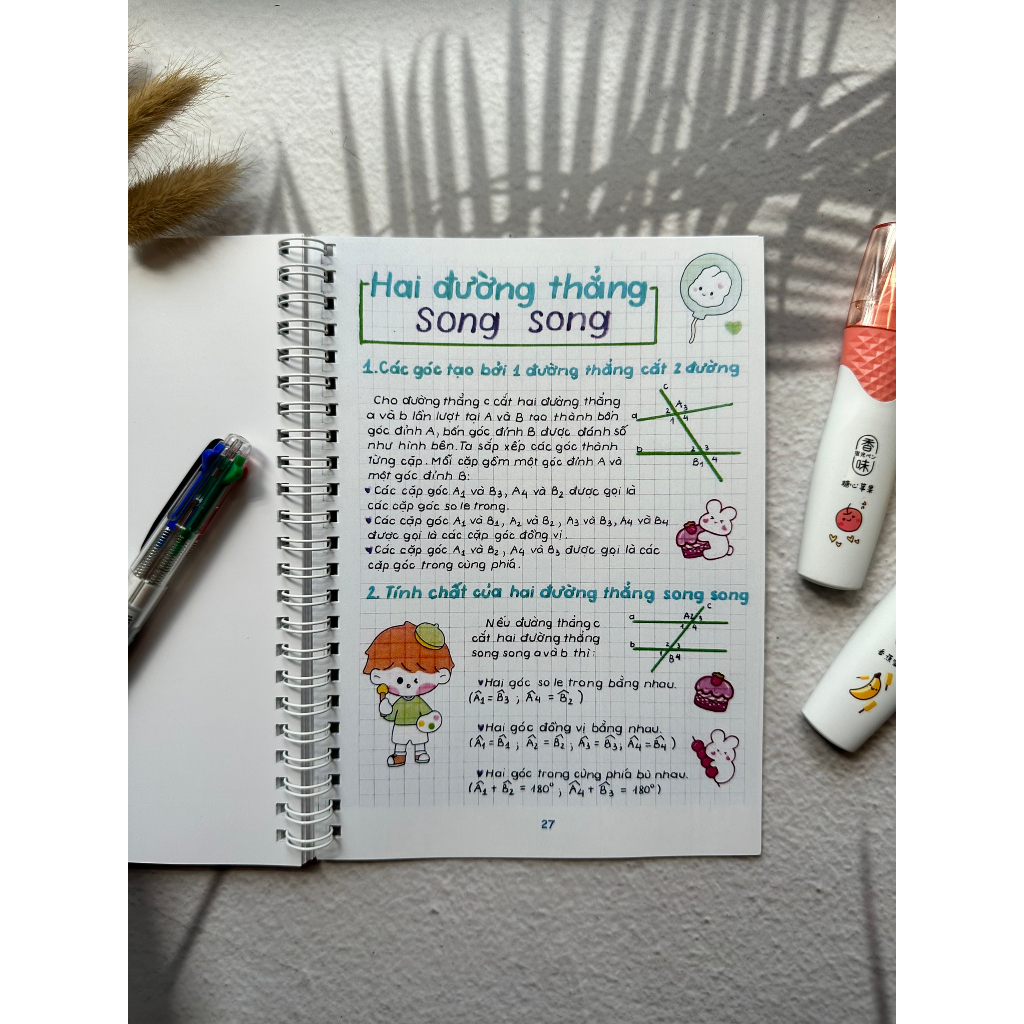 Hai đường thẳng
song song
1. Các góc tạo bởi 1 đường thẳng cắt 2 đường
Cho đường thẳng c cắt hai đường thẳng
a và b lần lượt tại A và B tạo thành bốn
góc đỉnh A, bốn góc đỉnh B được đánh số
như hình bên. Ta sắp xếp các góc thành
từng cặp. Mỗi cặp gồm một góc đỉnh A và
một góc đỉnh B:
c
a
2 A 3
1 4
b
2 3
B 1 4
♥ Các cặp góc A1 và B3, A4 và B2 được gọi là
các cặp góc so le trong.
♥ Các cặp góc A1 và B1, A2 và B2, A3 và B3, A4 và B4
được gọi là các cặp góc đồng vị.
♥ Các cặp góc A1 và B2, A4 và B3 được gọi là các
cặp góc trong cùng phía.
2. Tính chất của hai đường thẳng song song
Nếu đường thẳng c
cắt hai đường thẳng
song song a và b thì:
c
a
A 2 3
1 4
b
2 3
1 B 4
♥ Hai góc so le trong bằng nhau.
(Â1 = B̂3 ; Â4 = B̂2)
♥ Hai góc đồng vị bằng nhau.
(Â1 = B̂1 ; Â2 = B̂2 ; Â3 = B̂3 ; Â4 = B̂4)
♥ Hai góc trong cùng phía bù nhau.
(Â1 + B̂2 = 180° ; Â4 + B̂3 = 180°)
27
香
味
糖心苹果